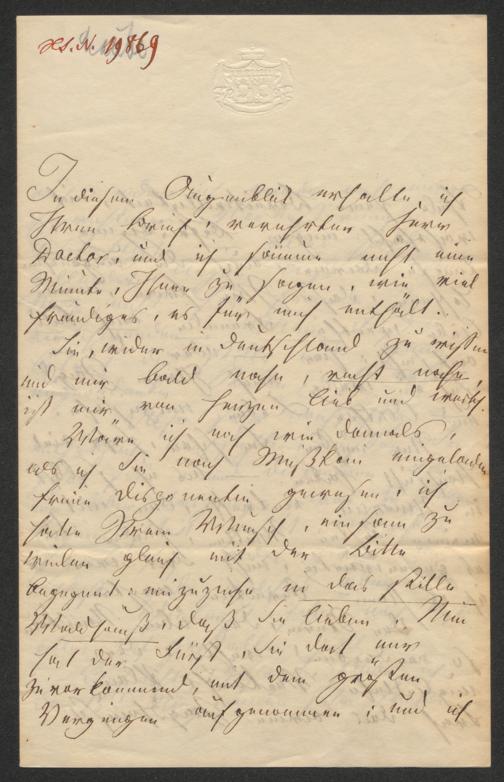 Hs. N. 19869
In diesem Augenblick erhalte ich
Ihren Brief, verehrter Herr
Doctor, und ich säume nicht eine
Minute, Ihnen zu sagen, wie viel
freudiges, es für mich enthält.
Sie, wieder in Deutschland zu wissen
und mir bald nahe, recht nahe,
ist mir von Herzen lieb und werth.
Wäre ich noch wie damals,
als ich Sie nach eingeladen
freie Disponentin gewesen, ich
hätte Ihrem Wunsch, einsam zu
weilen gleich mit der Bitte
begegnet: einzuziehn in das stille
Waldhaus, daß Sie lieben. Nun
hat der Fürst, Sie dort nur
zuvorkommend, mit dem größten
Vergnügen aufgenommen; und ich